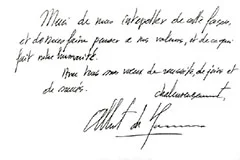 Merci de nous interpeller de cette façon,
et de nous faire penser à nos valeurs, et de ce qui
fait notre humanité.
Avec tous mes vœux de réussite, de joies et
de succès.
chaleureusement,
Albert de